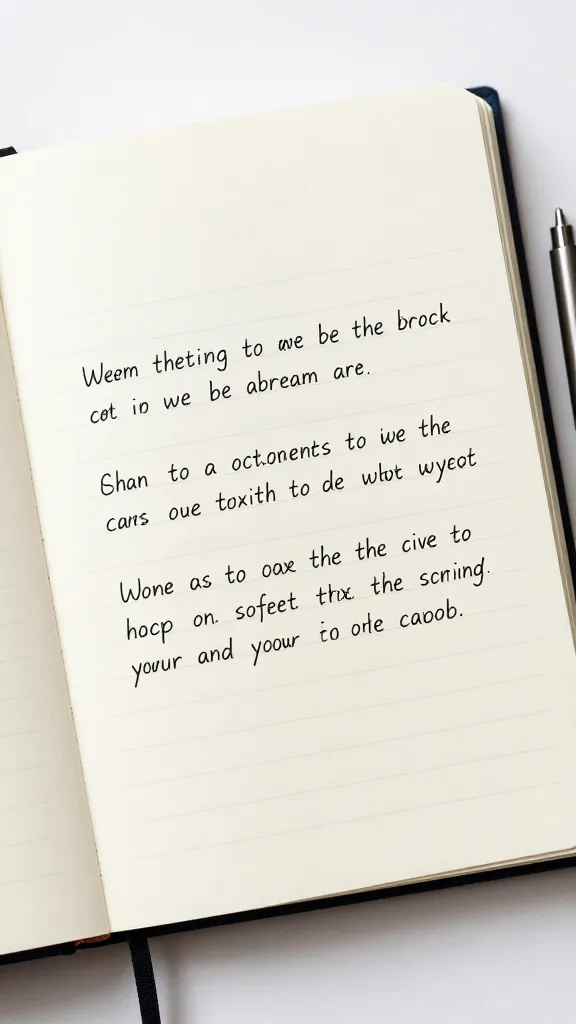 Weem theting to we be the brock
cot in we be abream are.
Shan to a oct.onents to iwe the
cans oue toxith to de whot wyeot
Wone as to oax the the cive to
hocp on. sofeet thx. the scrniing.
yovur and yoour to orle caoob.